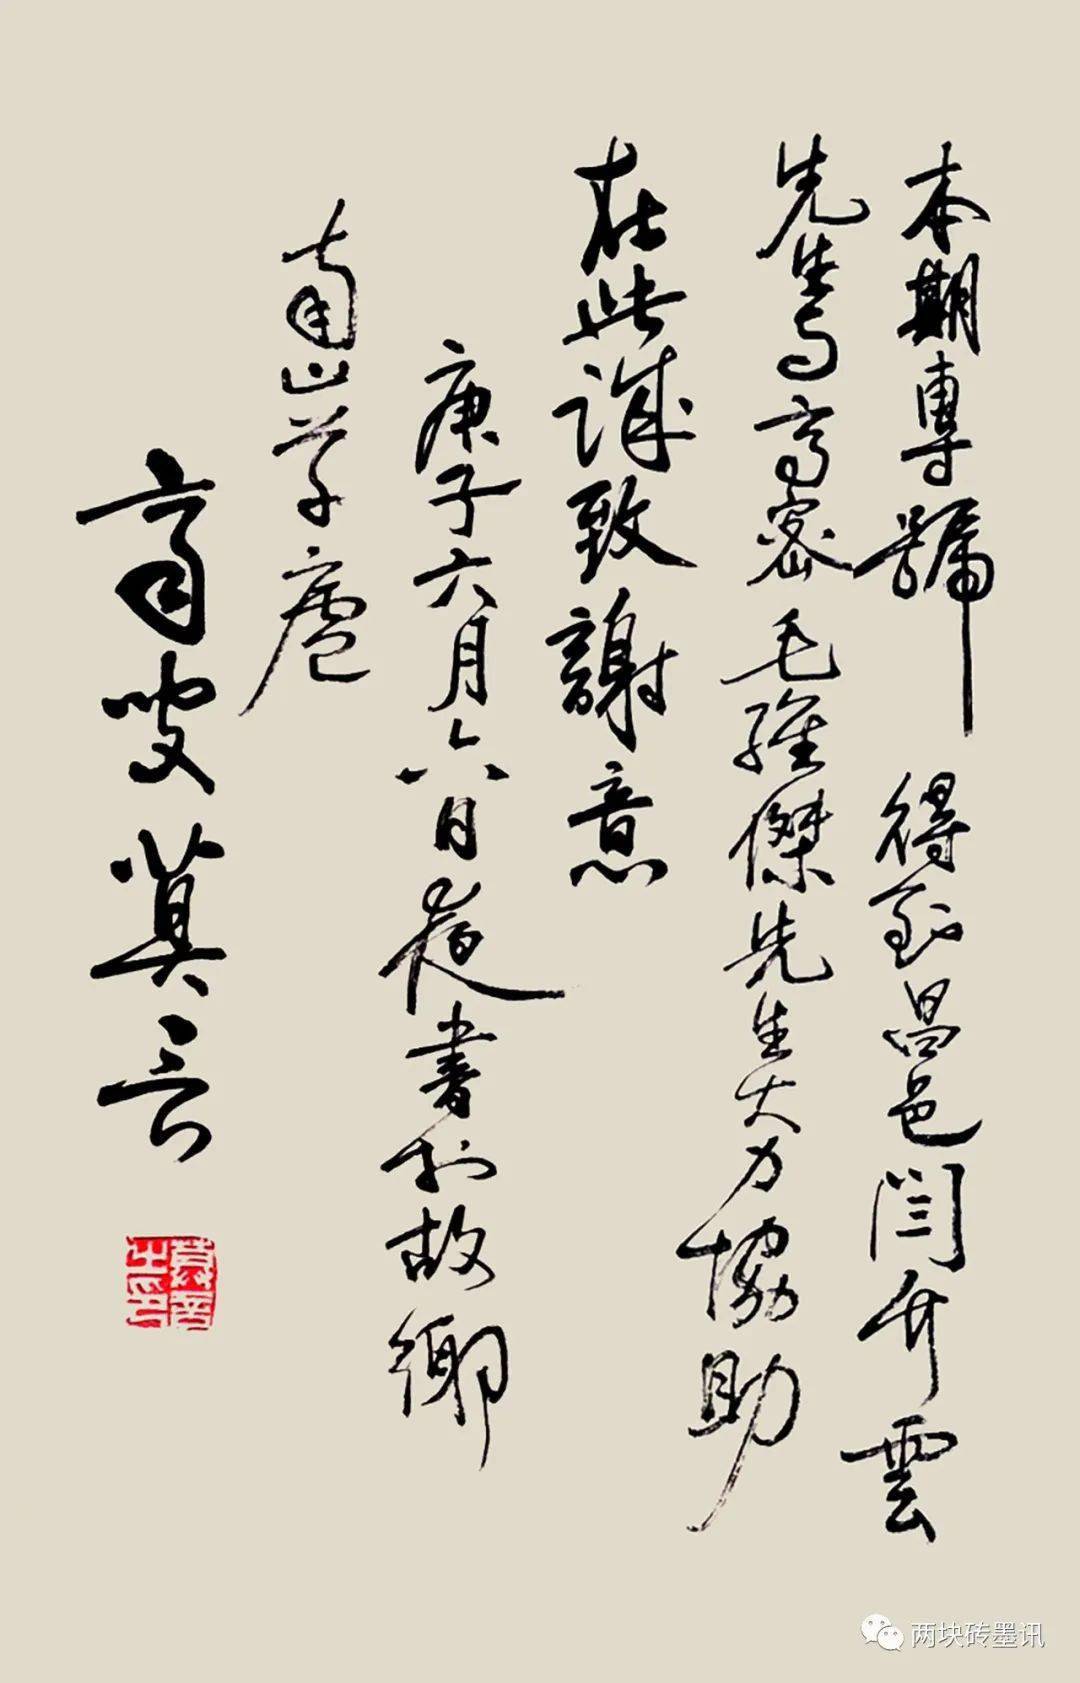 本期專號 得到昌邑閆升雲
先生与高密毛維傑先生大力協助
在此誠致謝意
庚子六月六日夜書於故鄉
南山草廬
高叟莫言
莫言之印
两块砖墨讯